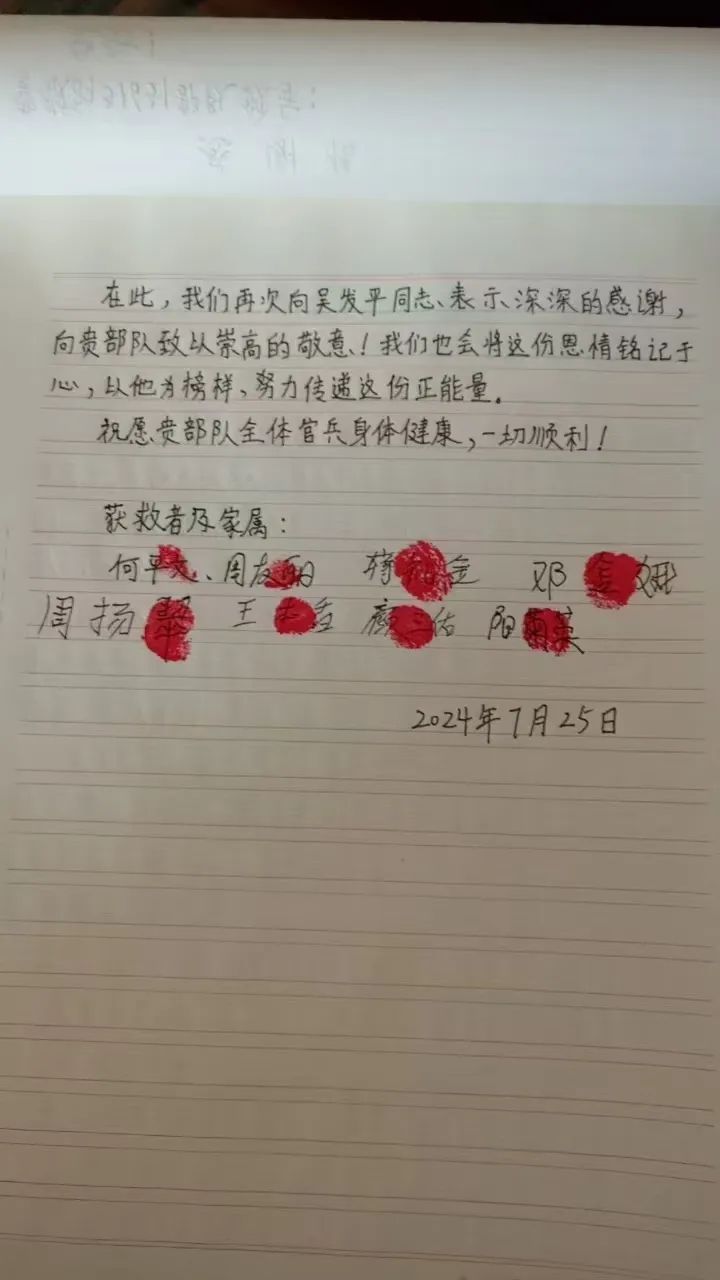 在此，我们再次向吴发平同志、表示深深的感谢，
向贵部队致以崇高的敬意！我们也会将这份恩情铭记于
心，以他为榜样、努力传递这份正能量。
祝愿贵部队全体官兵身体健康，一切顺利！
获救者及家属：
何平文、周友丽 蒋 金 邓金娥
周扬翠 王 香 颜三佑 阳菊英
2024年7月25日